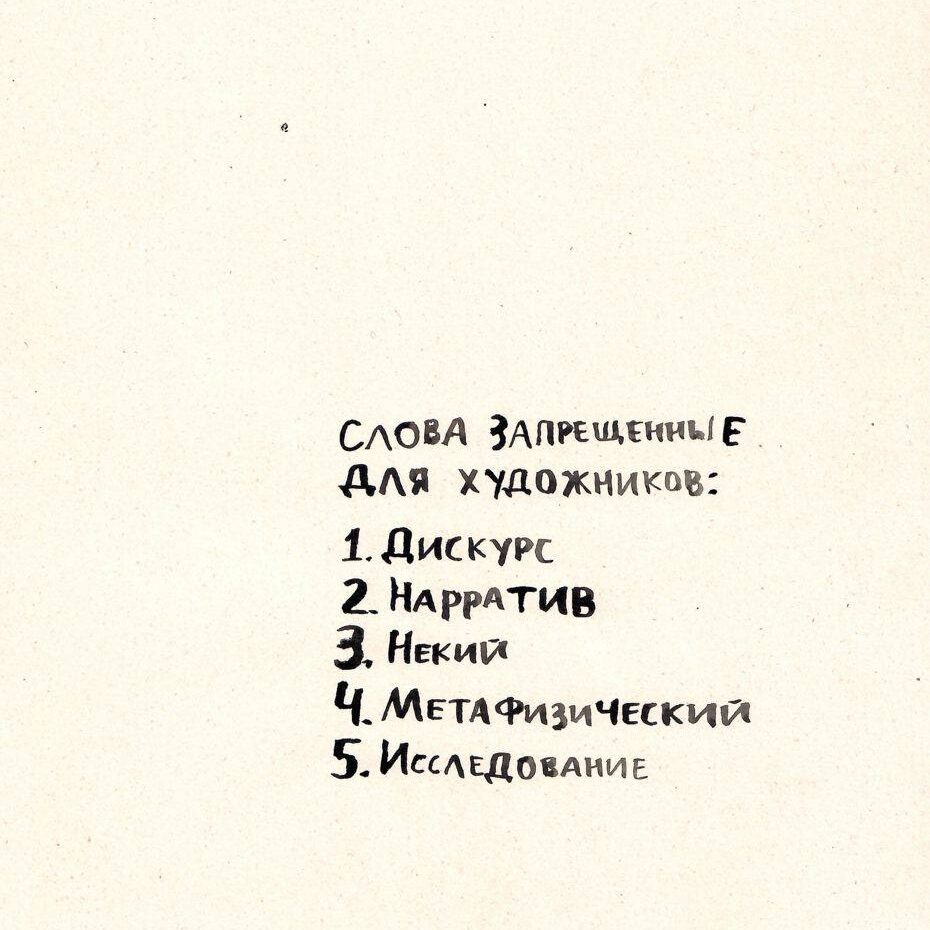 Слова запрещенные
для художников:
1. Дискурс
2. Нарратив
3. Некий
4. Метафизический
5. Исследование